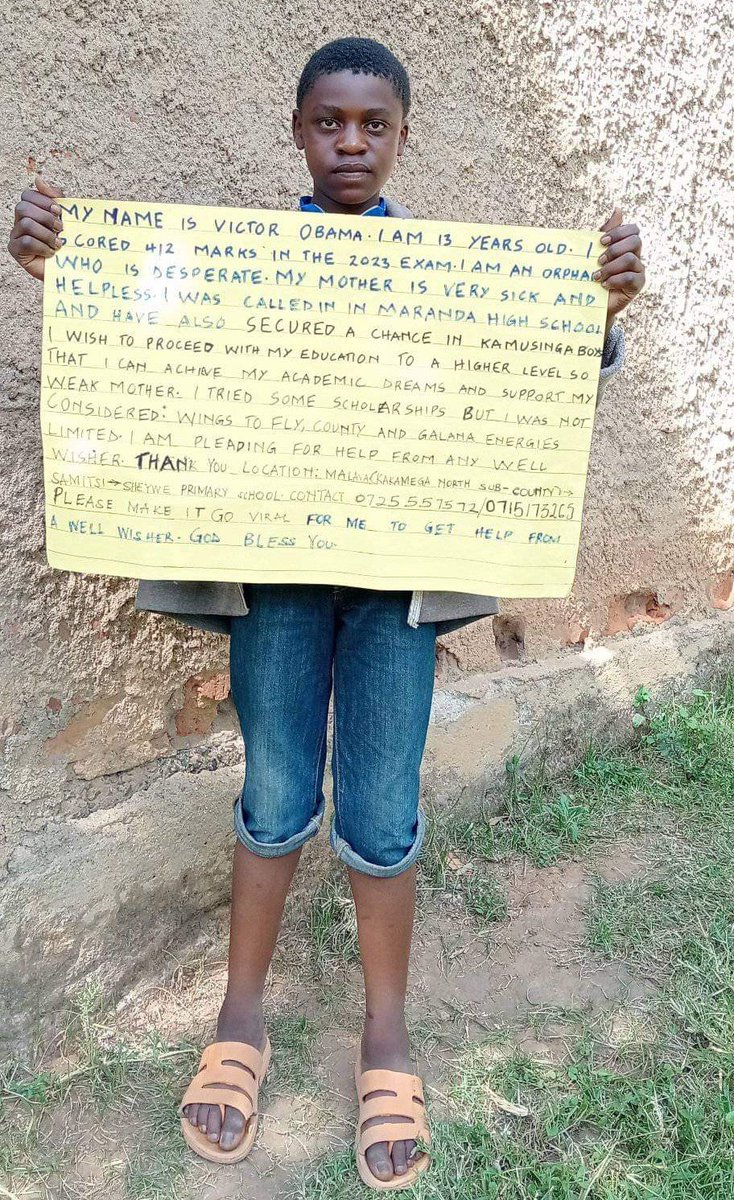 MY NAME IS VICTOR OBAMA. I AM 13 YEARS OLD. I
SCORED 412 MARKS IN THE 2023 EXAM. I AM AN ORPHAN
WHO IS DESPERATE. MY MOTHER IS VERY SICK AND
HELPLESS. I WAS CALLED IN IN MARANDA HIGH SCHOOL
AND HAVE ALSO SECURED A CHANCE IN KAMUSINGA BOYS
I WISH TO PROCEED WITH MY EDUCATION TO A HIGHER LEVEL SO
THAT I CAN ACHIEVE MY ACADEMIC DREAMS AND SUPPORT MY
WEAK MOTHER. I TRIED SOME SCHOLARSHIPS BUT I WAS NOT
CONSIDERED: WINGS TO FLY, COUNTY AND GALANA ENERGIES
LIMITED. I AM PLEADING FOR HELP FROM ANY WELL
WISHER. THANK YOU LOCATION: MALAVA(KAKAMEGA NORTH SUB-COUNTY)→
SAMITSI→SHEYWE PRIMARY SCHOOL. CONTACT 0725557572/0715173265
PLEASE MAKE IT GO VIRAL FOR ME TO GET HELP FROM
A WELL WISHER. GOD BLESS YOU.